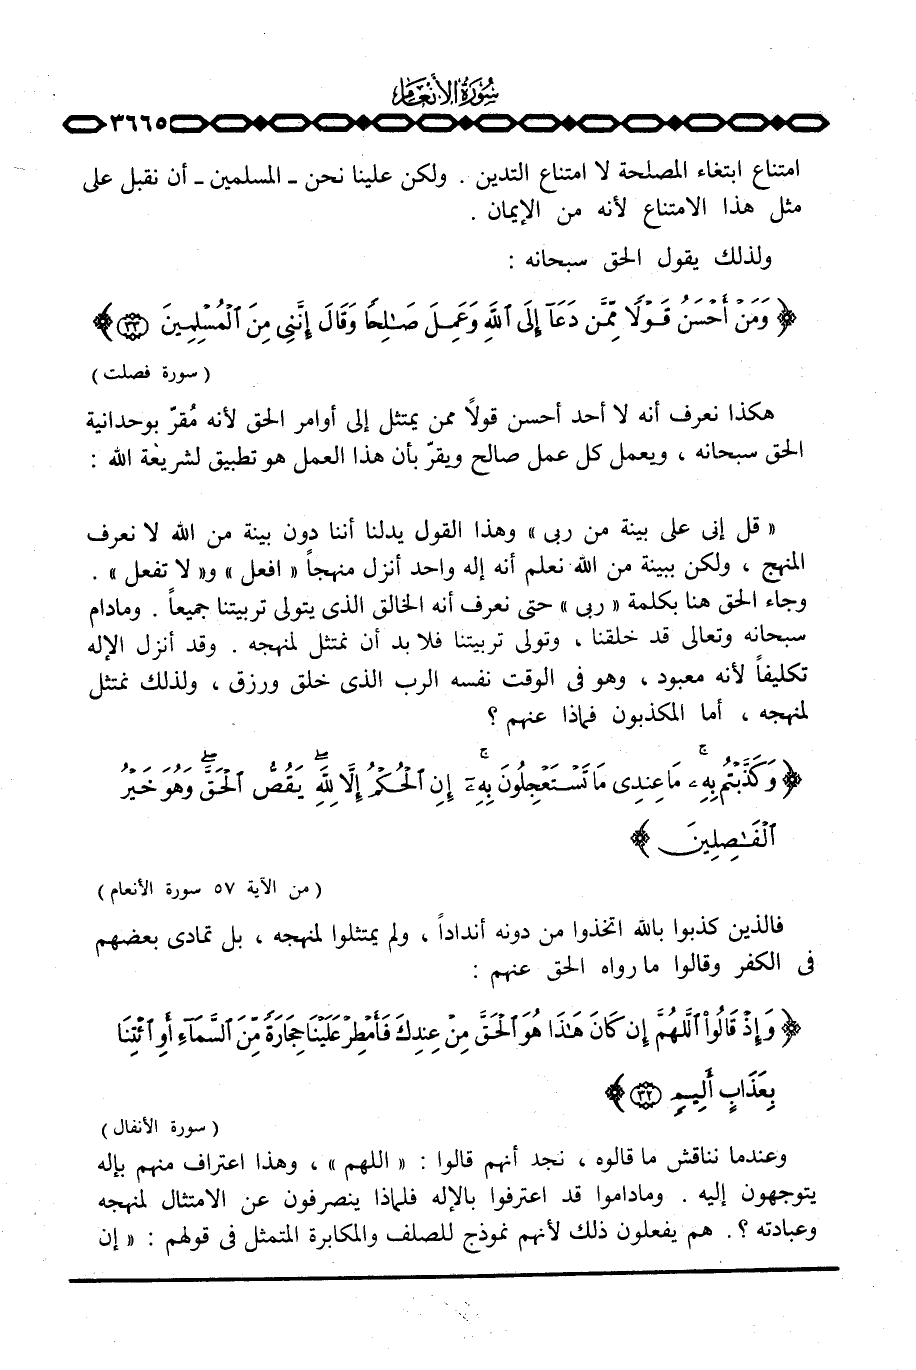 سُورَةُ الأنعام
٣٦٦٥
امتناع ابتغاء المصلحة لا امتناع التدين . ولكن علينا نحن ـ المسلمين ـ أن نقبل على
مثل هذا الامتناع لأنه من الإيمان .
ولذلك يقول الحق سبحانه :
﴿ وَمَنْ أَحْسَنُ قَوْلًا مِّمَّن دَعَآ إِلَى ٱللَّهِ وَعَمِلَ صَـٰلِحًا وَقَالَ إِنَّنِى مِنَ ٱلْمُسْلِمِينَ ٣٣ ﴾
( سورة فصلت )
هكذا نعرف أنه لا أحد أحسن قولاً ممن يمتثل إلى أوامر الحق لأنه مُقرّ بوحدانية
الحق سبحانه ، ويعمل كل عمل صالح ويقرّ بأن هذا العمل هو تطبيق لشريعة الله :
« قل إنى على بينة من ربى » وهذا القول يدلنا أننا دون بينة من الله لا نعرف
المنهج ، ولكن ببينة من الله نعلم أنه إله واحد أنزل منهجاً « افعل » و« لا تفعل » .
وجاء الحق هنا بكلمة « ربى » حتى نعرف أنه الخالق الذى يتولى تربيتنا جميعاً . ومادام
سبحانه وتعالى قد خلقنا ، وتولى تربيتنا فلا بد أن نمتثل لمنهجه . وقد أنزل الإله
تكليفاً لأنه معبود ، وهو فى الوقت نفسه الرب الذى خلق ورزق ، ولذلك نمتثل
لمنهجه ، أما المكذبون فماذا عنهم ؟
﴿ وَكَذَّبْتُم بِهِۦ ۚ مَا عِندِى مَا تَسْتَعْجِلُونَ بِهِۦٓ ۚ إِنِ ٱلْحُكْمُ إِلَّا لِلَّهِ ۖ يَقُصُّ ٱلْحَقَّ ۖ وَهُوَ خَيْرُ
ٱلْفَـٰصِلِينَ ﴾
( من الآية ٥٧ سورة الأنعام )
فالذين كذبوا بالله اتخذوا من دونه أنداداً ، ولم يمتثلوا لمنهجه ، بل تمادى بعضهم
فى الكفر وقالوا ما رواه الحق عنهم :
﴿ وَإِذْ قَالُوا۟ ٱللَّهُمَّ إِن كَانَ هَـٰذَا هُوَ ٱلْحَقَّ مِنْ عِندِكَ فَأَمْطِرْ عَلَيْنَا حِجَارَةً مِّنَ ٱلسَّمَآءِ أَوِ ٱئْتِنَا
بِعَذَابٍ أَلِيمٍ ٣٢ ﴾
( سورة الأنفال )
وعندما نناقش ما قالوه ، نجد أنهم قالوا : « اللهم » ، وهذا اعتراف منهم بإله
يتوجهون إليه . وماداموا قد اعترفوا بالإله فلماذا ينصرفون عن الامتثال لمنهجه
وعبادته ؟. هم يفعلون ذلك لأنهم نموذج للصلف والمكابرة المتمثل فى قولهم : « إن